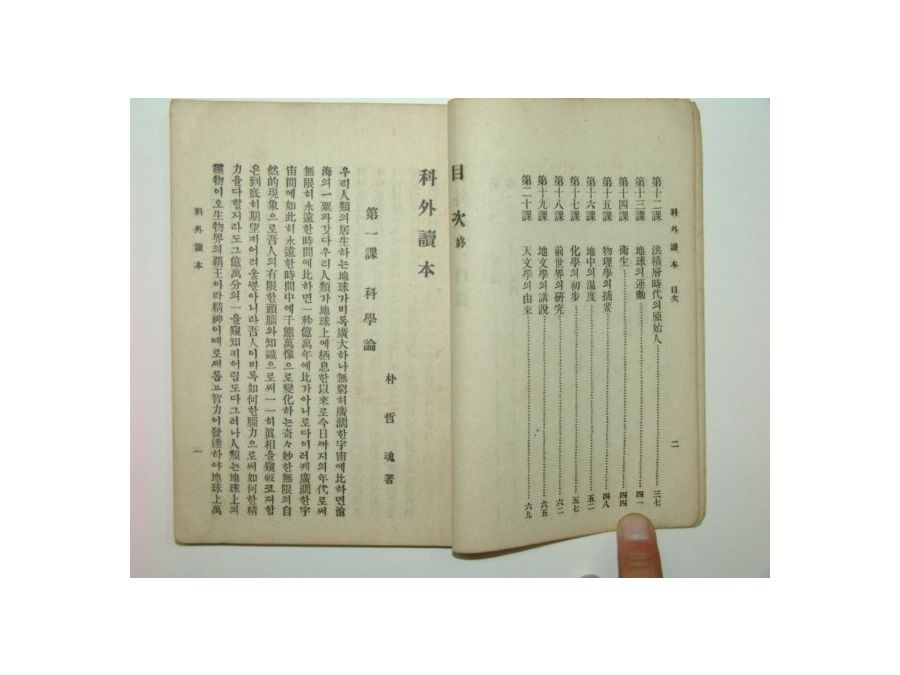 科外讀本 目次
二
第十二課 洪積層時代의原始人 三七
第十三課 地球의運動 四一
第十四課 衛生 四四
第十五課 物理學의摘要 四八
第十六課 地中의温度 五二
第十七課 化學의初步 五七
第十八課 前世界의硏究 六二
第十九課 地文學의講說 六五
第二十課 天文學의由來 六九
目次 終
科外讀本
朴哲魂 著
第一課 科學論
우리人類의居生하는地球가비록廣大하나無窮히廣濶한宇宙에比하면滄
海의一粟과갓다우리人類가地球上에栖息한以來로今日까지의年代로써
無限히永遠한時間에比하면一秒億萬年에比가아니로다이러케廣濶한宇
宙間에如此히永遠한時間中에千態萬像으로變化하는奇々妙한無限의自
然的現象으로吾人의有限한頭腦와知識으로써一一히眞相을窺破코져함
은到底히期望키어려울뿐아니라吾人이비록如何한腦力으로써如何한精
力을다할지라도그億萬分의一을窺知키어렵도다그러나人類는地球上의
靈物이오生物界의覇王이라精神이때로써돕고智力이發達하야地球上萬
科外讀本
一